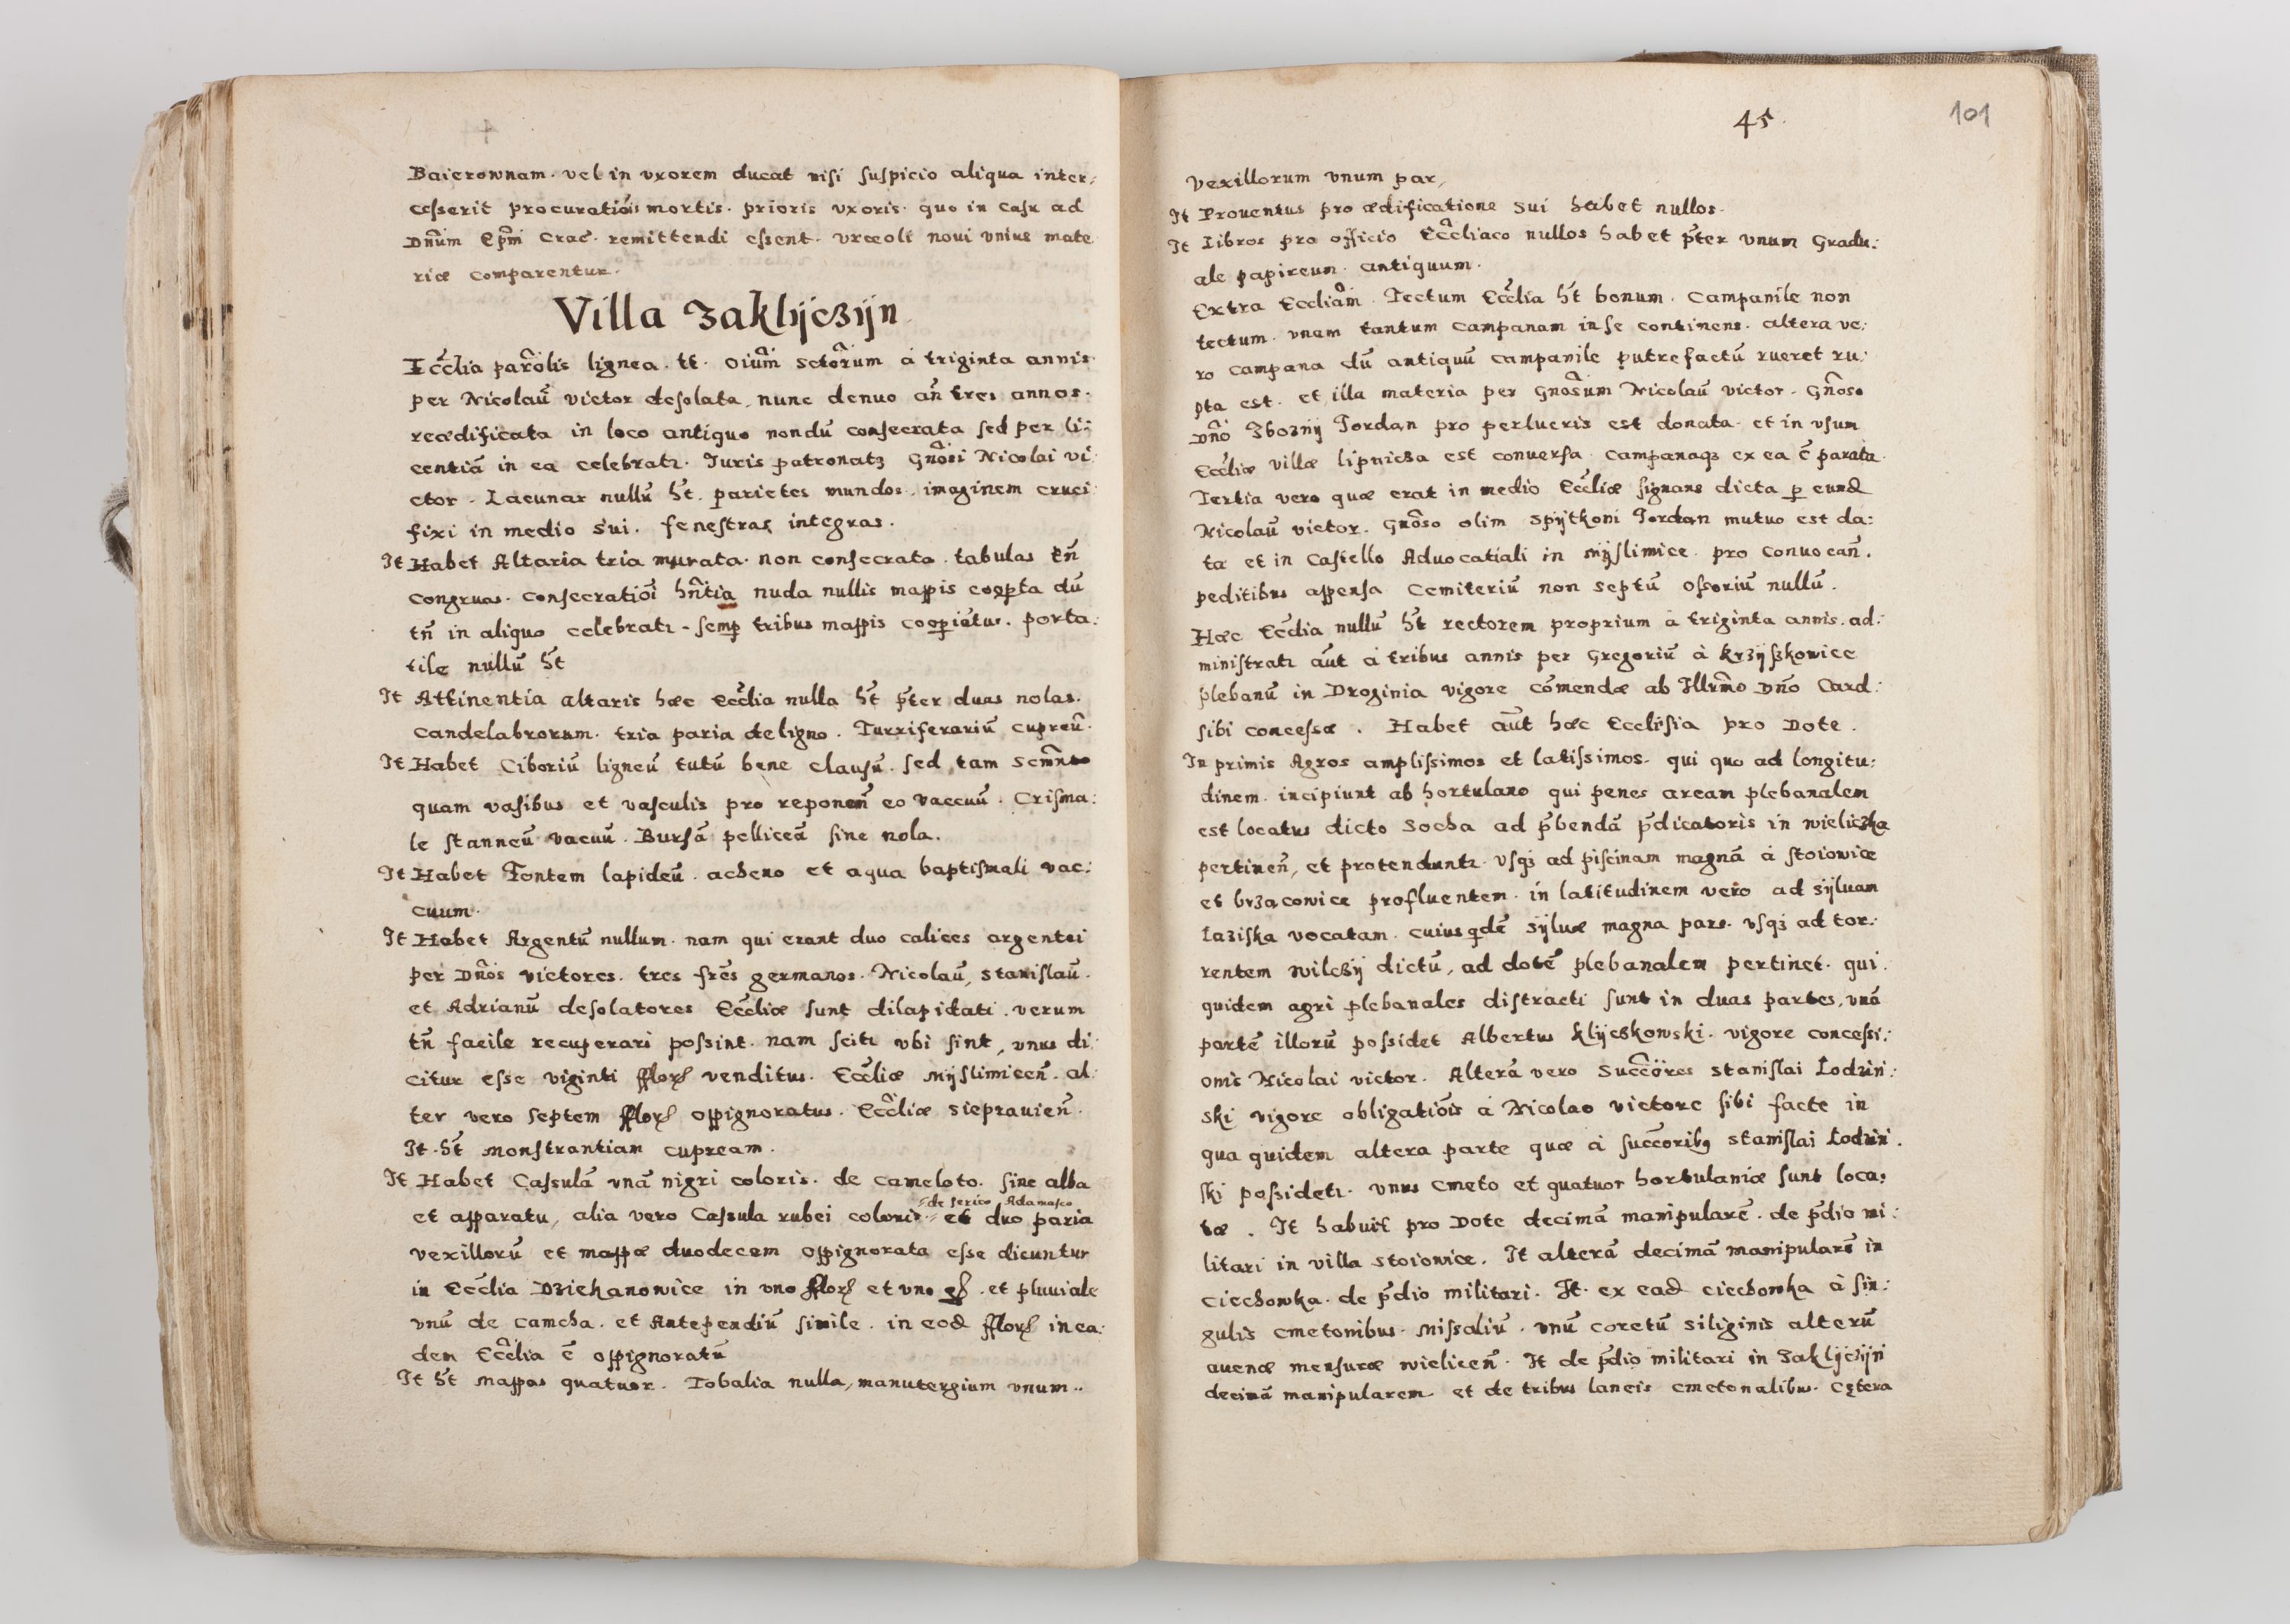 Baierownam. vel in vxorem ducat nisi suspicio aliqua inter:
cesserit procuratiōis mortis. prioris vxoris. quo in casu ad
Dnūm Epm̄ Crac̄. remittendi essent. vrceoli noui vnius mate
riæ comparentur.
Villa Zaklijczijn
Ecc̄lia parōlis lignea. tt. Oium̄ Sctōrum à triginta annis.
per Nicolaū victor desolata, nunc denuo an̄ tres annos.
reædificata in loco antiquo nondū consecrata sed per li:
centiā in ea celebratr. Iuris patronatꝫ Gnōsi Nicolai vi
ctor. Lacunar nullū ht̄. parietes mundos. imaginem cruci
fixi in medio sui. fenestras integras.
It Habet Altaria tria murata. non consecrata. tabulas tn̄
congruas. consecratiōi hn̄tia nuda nullis mappis cooꝑta dū
tn̄ in aliquo celebratr. semꝑ tribus mappis cooꝑiūtur. porta:
tile nullū ht̄
It Attinentia altaris hæc ecc̄lia nulla ht̄ p̄ter duas nolas.
candelabrorum. tria paria de ligno. Turriferariū cupreū.
It Habet Ciboriū ligneū tutū bene clausū. sed tam Scmn̄to
quam vasibus et vasculis pro reponen̄ eo vaccuū. Crisma:
le stanneū vacuū. Bursā pelliceā sine nola.
It Habet Fontem lapideū. acheno et aqua baptismali vac:
cuum.
It Habet Argentū nullum. nam qui erant duo calices argentei
per Dnōs victores. tres fr̄es germanos. Nicolaū, Stanislaū.
et Adrianū desolatores Ecc̄liæ sunt dilapidati. verum
tn̄ facile recuperari possint. nam scitr vbi sint, vnus di:
citur esse viginti fflor̄ venditus. Ecc̄liæ Mijslimicen̄. al:
ter vero septem fflor̄ oppignoratus. Ecc̄liæ Siepravien̄.
It. ht̄ monstrantiam cupream.
It Habet Casulā vnā nigri coloris. de cameloto. sine alba
de serico Adamasco
et apparatu, alia vero Casula rubei coloris et duo paria
vexillorū et mappæ duodecem oppignorata esse dicuntur
in Ecc̄lia Dziekanowice in vno fflor̄ et vno gr̄. et pluuiale
vnū de camcha. et Antependiū simile. in eod fflor̄ in ea:
dem Ecc̄lia ē oppignoratū
It ht̄ mappas quatuor. Tobalia nulla, manutergium vnum..
45.
101
Vexillorum vnum par,
It Prouentus pro ædificatione sui habet nullos.
It Libros pro officio Ecc̄liaco nullos habet p̄ter vnum Gradu:
ale papireum. antiquum.
Extra Eccliām. Tectum Ecc̄lia ht̄ bonum. Campanile non
tectum. vnam tantum campanam in se continens. altera ve:
ro campana dū antiquū campanile putrefactū rueret ru:
pta est. et illa materia per Gnosūm Nicolaū victor. Gn̄oso
Dnō Zbozny Jordan pro perlucris est donata. et in vsum
Ecc̄liæ villæ lipnicza est conuersa. Campanaqꝫ ex ea ē parata.
Tertia vero quæ erat in medio Ecc̄liæ signans dicta ꝑ eund
Nicolaū victor. Gnōso olim Spijtkoni Jordan mutuo est da:
ta et in Castello Aduocatiali in mijslimice. pro conuocan̄.
peditibus appensa cemiteriū non septū ossoriū nullū.
Hæc Ecc̄lia nullū ht̄ rectorem proprium à triginta annis. ad:
ministratr aūt à tribus annis per Gregoriū à Krzijszkowice
plebanū in Droginia vigore cōmendæ ab Illrm̄o Dnō Card:
sibi concessæ. Habet aūt hæc Ecclesia pro Dote.
In primis Agros amplissimos et latissimos. qui quo ad longitu:
dinem. incipiunt ab hortulano qui penes aream plebanalem
est locatus dicto Socha ad p̄bendā p̄dicatoris in wieliczka
pertinen̄, et protenduntr. vsqꝫ ad piscinam magnā à stoiowice
et brzączowice profluentem. in latitudinem vero ad sijluam
Laziska vocatam. cuius qdē sijluæ magna pars. vsqꝫ ad tor:
rentem wilczij dictū, ad dotē plebanalem pertinet. qui.
quidem agri plebanales distracti sunt in duas partes, vnā
partē illorū possidet Albertus Klijczkowski. vigore concessi:
onis Nicolai victor. Alterā vero Succ̄ores Stanislai Lodzin:
ski vigore obligatiōis à Nicolao victore sibi facte in
qua quidem altera parte quæ à succ̄oribꝫ stanislai Lodzin.
ski possidetr. vnus cmeto et quatuor hortulaniæ sunt loca:
tæ. It habuit pro Dote decimā manipularē. de p̄dio mi:
litari in villa stoiowice. It alterā decimā manipularē in
Ciechowka. de p̄dio militari. It. ex ead ciechowka à sin:
gulis cmetonibus. missaliū. vnū coretū siliginis alterū
auenæ mensuræ wielicen̄. It de p̄dio militari in Zaklijczijn
decimā manipularem et de tribus laneis cmetonalibus. Cętera